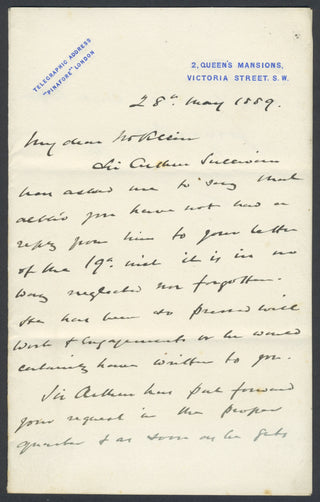 TELEGRAPHIC ADDRESS
"PINAFORE" LONDON
2, QUEEN'S MANSIONS,
VICTORIA STREET, S.W.
28th May 1889.
My dear Mr Klein
Sir Arthur Sullivan
has asked me to say that
altho' you have not had a
reply from him to your letter
of the 19th inst it is in no
way neglected nor forgotten.
He has been so pressed with
work & Engagements or he would
certainly have written to you.
Sir Arthur has put forward
your request in the proper
quarter & as soon as he gets